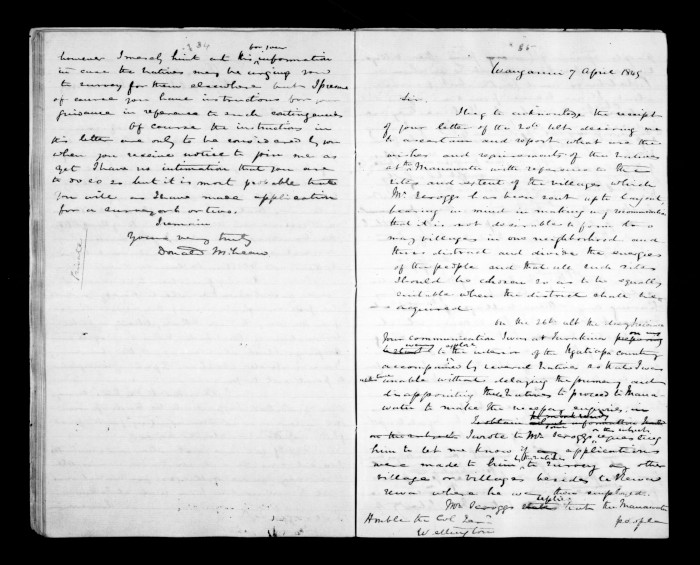 84
however I merely hint at this for your information
in case the Natives may be urging you
to survey for them elsewhere but I presume
of course you have instructions for your
guidance in reference to such contingencies
Of course the instructions in
this letter are only to be considered by you
when you receive notice to join me as
yet I have no intimation that you are
to do so but it is most probable that
you will as I have made application
for a surveyor or two.
I remain
Yours very truly
Donald McLean
Private
85
Wanganui 7 April 1849
Sir,
I beg to acknowledge the receipt
of your letter of the 20th Ult desiring me
to ascertain and report what are the
wishes and requirements of the Natives
at the Manawatu with reference to the
sites and extent of the villages which
Mr. Scroggs has been sent up to lay out,
bearing in mind in making my recommendation
that it is not desirable to form too
many villages in one neighborhood and
thus distract and divide the energies
of the people and that all such sites
should be chosen so as to be equally
suitable when the district shall be
acquired.
On the 26th ult the day I received
Your communication I was at Turakina
on my way to the interior of the Ngatiapa country
accompanied by several Natives so that I was
unable without delaying the journey and
disappointing these Natives to proceed to Mana-
watu to make the necessary enquiries.
To obtain information
I wrote to Mr. Scroggs on the subject requesting
him to let me know if applications
were made to him by the Natives to survey any other
village or villages besides Te Awa-
hou where he was then employed.
Mr. Scroggs replies that the Manawatu
people
Honble the Col. Secy
Wellington